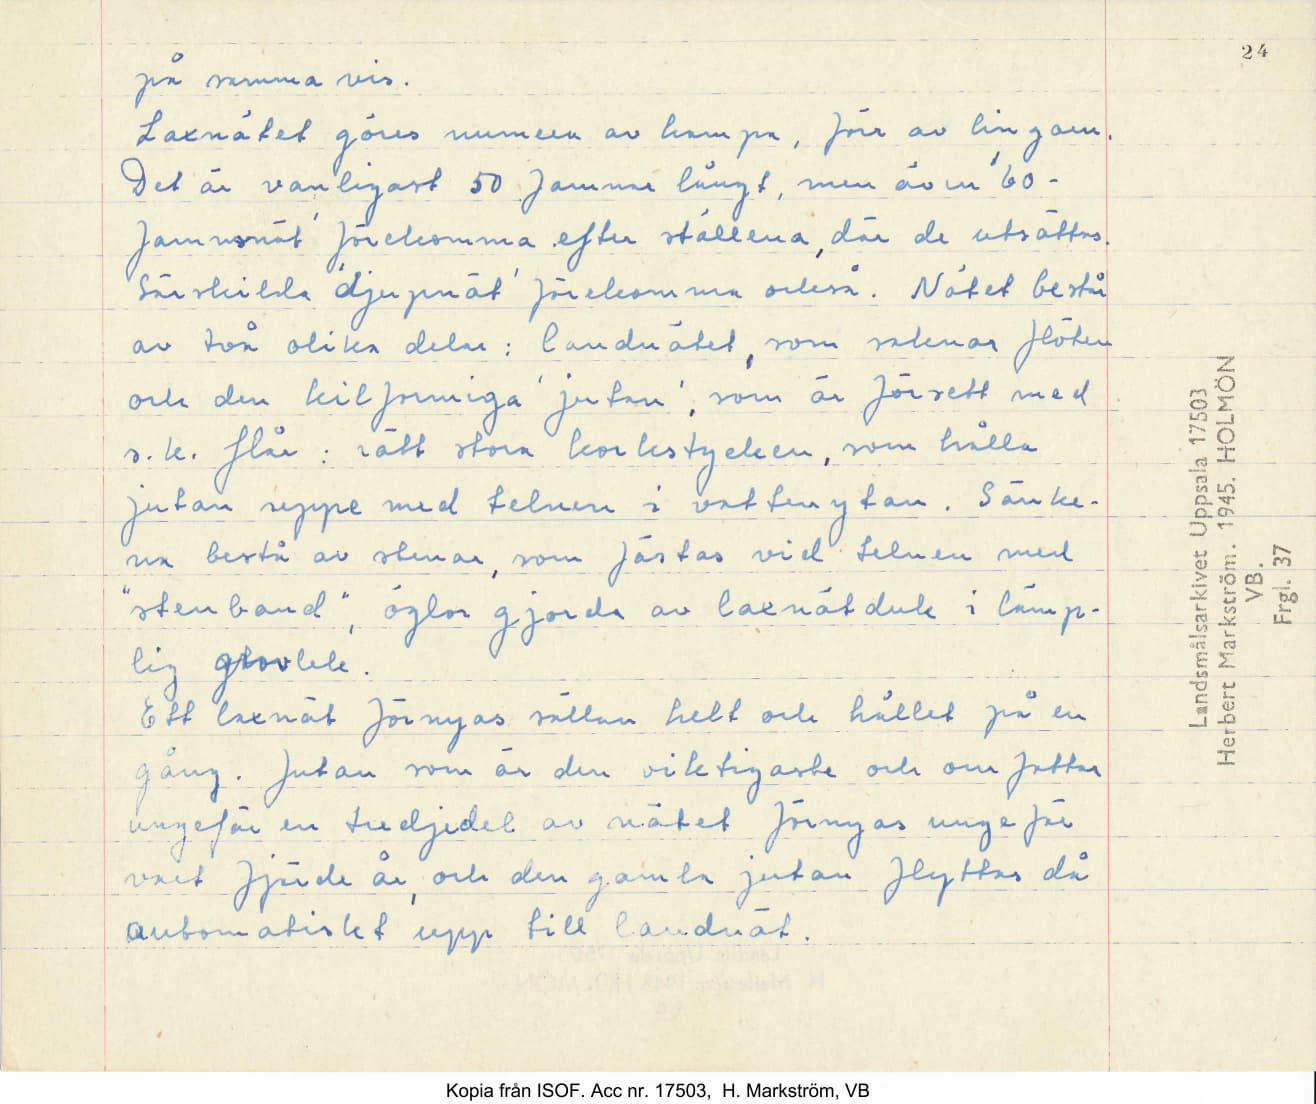 24
på samma vis.
Laxnätet göres numera av hampa, förr av lingarn.
Det är vanligast 50 famnar långt, men även '60-
famnsnät' förekomma efter ställena, där de utsättas.
Särskilda 'djupnät' förekomma också. Nätet består
av två olika delar: landnätet, som saknar flöten
och den kilformiga 'jutan', som är försett med
s.k. flår: rätt stora korkstycken, som hålla
jutan uppe med telnen i vattenytan. Sänke-
na bestå av stenar, som fästas vid telnen med
"stenband", öglor gjorda av laxnätduk i lämp-
lig grovlek.
Ett laxnät förnyas sällan helt och hållet på en
gång. Jutan som är den viktigaste och omfattar
ungefär en tredjedel av nätet förnyas ungefär
vart fjärde år, och den gamla jutan flyttas då
automatiskt upp till landnät.
Landsmålsarkivet Uppsala 17503
Herbert Markström. 1945. HOLMÖN
VB.
Frgl. 37
Kopia från ISOF. Acc nr. 17503, H. Markström, VB